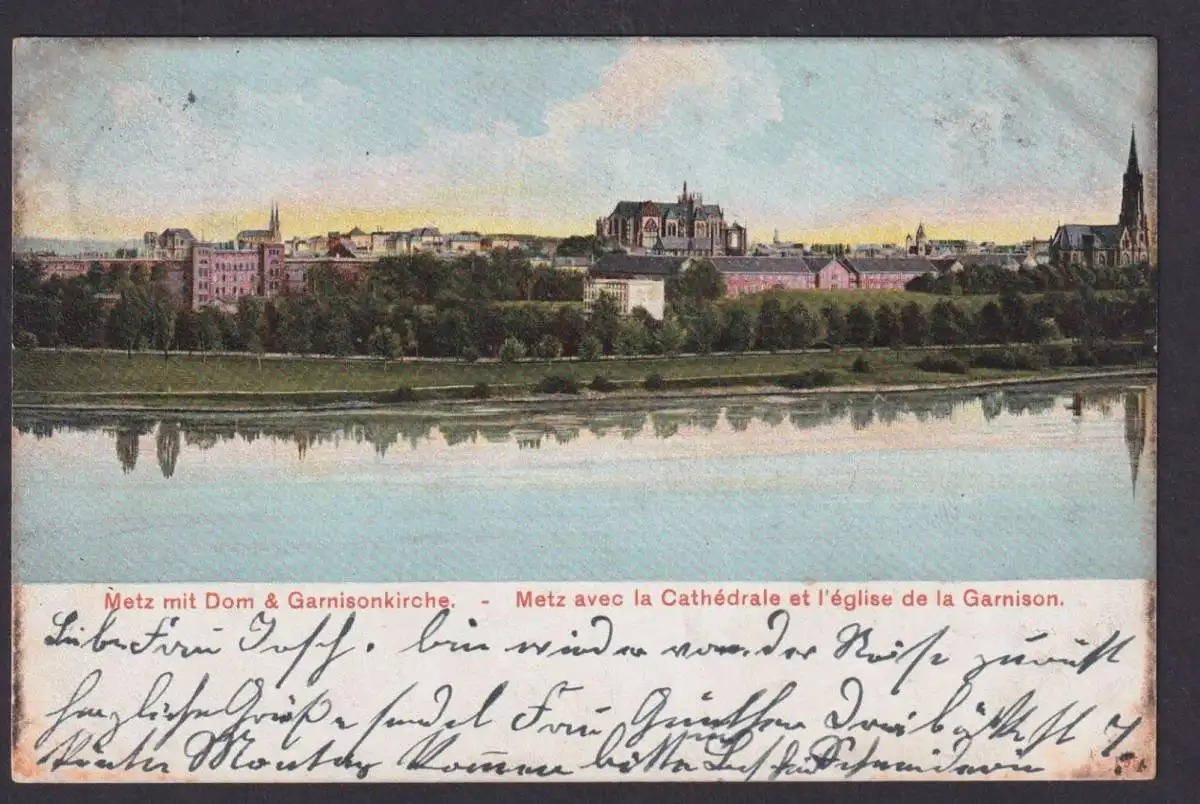 Metz mit Dom & Garnisonkirche. - Metz avec la Cathédrale et l'église de la Garnison.
Liebe Frau Josch. bin wieder von der Reise zurück
herzliche Grüße sendet Frau Günther
Montag kommen bitte Schneiderin